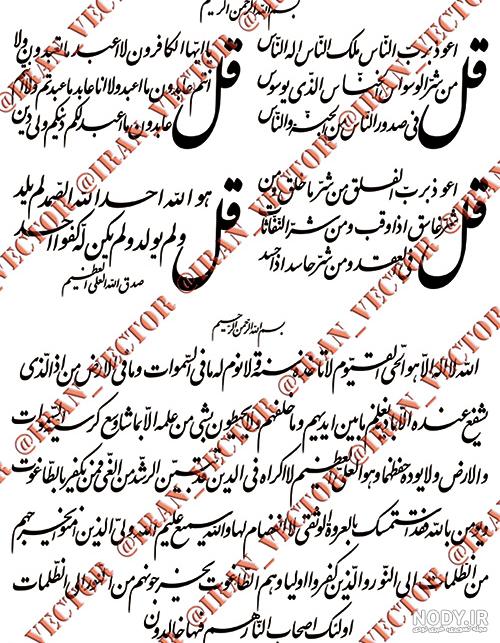 بسم الله الرحمن الرحیم
قل
اعوذ برب الناس ملک الناس اله الناس
من شر الوسواس الخناس الذی یوسوس
فی صدور الناس من الجنة والناس
قل
یا ایها الکافرون لا اعبد ما تعبدون ولا
انتم عابدون ما اعبد ولا انا عابد ما عبدتم ولا انتم
عابدون ما اعبد لکم دینکم ولی دین
قل
اعوذ برب الفلق من شر ما خلق ومن
شر غاسق اذا وقب ومن شر النفاثات
فی العقد ومن شر حاسد اذا حسد
قل
هو الله احد الله الصمد لم یلد
ولم یولد ولم یکن له کفوا احد
صدق الله العلی العظیم
بسم الله الرحمن الرحیم
الله لا اله الا هو الحی القیوم لا تاخذه سنة ولا نوم له ما فی السموات وما فی الارض من ذا الذی
یشفع عنده الا باذنه یعلم ما بین ایدیهم وما خلفهم ولا یحیطون بشی من علمه الا بما شا وسع کرسیه السموات
والارض ولا یوده حفظهما وهو العلی العظیم لا اکراه فی الدین قد تبین الرشد من الغی فمن یکفر بالطاغوت
ویومن بالله فقد استمسک بالعروة الوثقی لا انفصام لها والله سمیع علیم الله ولی الذین امنوا یخرجهم
من الظلمات الی النور والذین کفروا اولیاوهم الطاغوت یخرجونهم من النور الی الظلمات
اولئک اصحاب النار هم فیها خالدون
@IRAN_VECTOR
NODY.IR